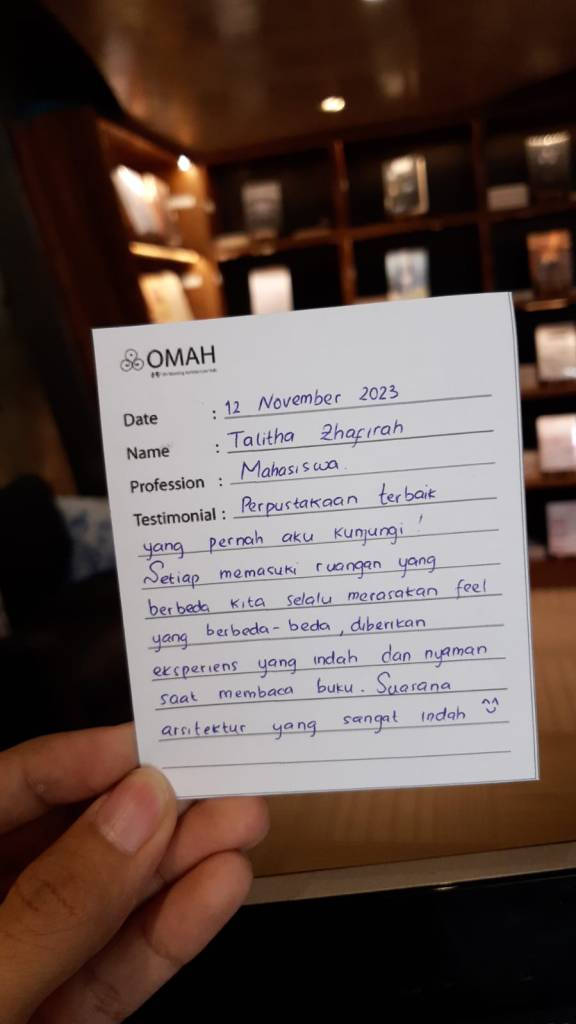 OMAH
Date : 12 November 2023
Name : Talitha Zhafirah
Profession : Mahasiswa.
Testimonial : Perpustakaan terbaik
yang pernah aku kunjungi!
Setiap memasuki ruangan yang
berbeda kita selalu merasakan feel
yang berbeda-beda, diberikan
eksperiens yang indah dan nyaman
saat membaca buku. Suasana
arsitektur yang sangat indah ^^